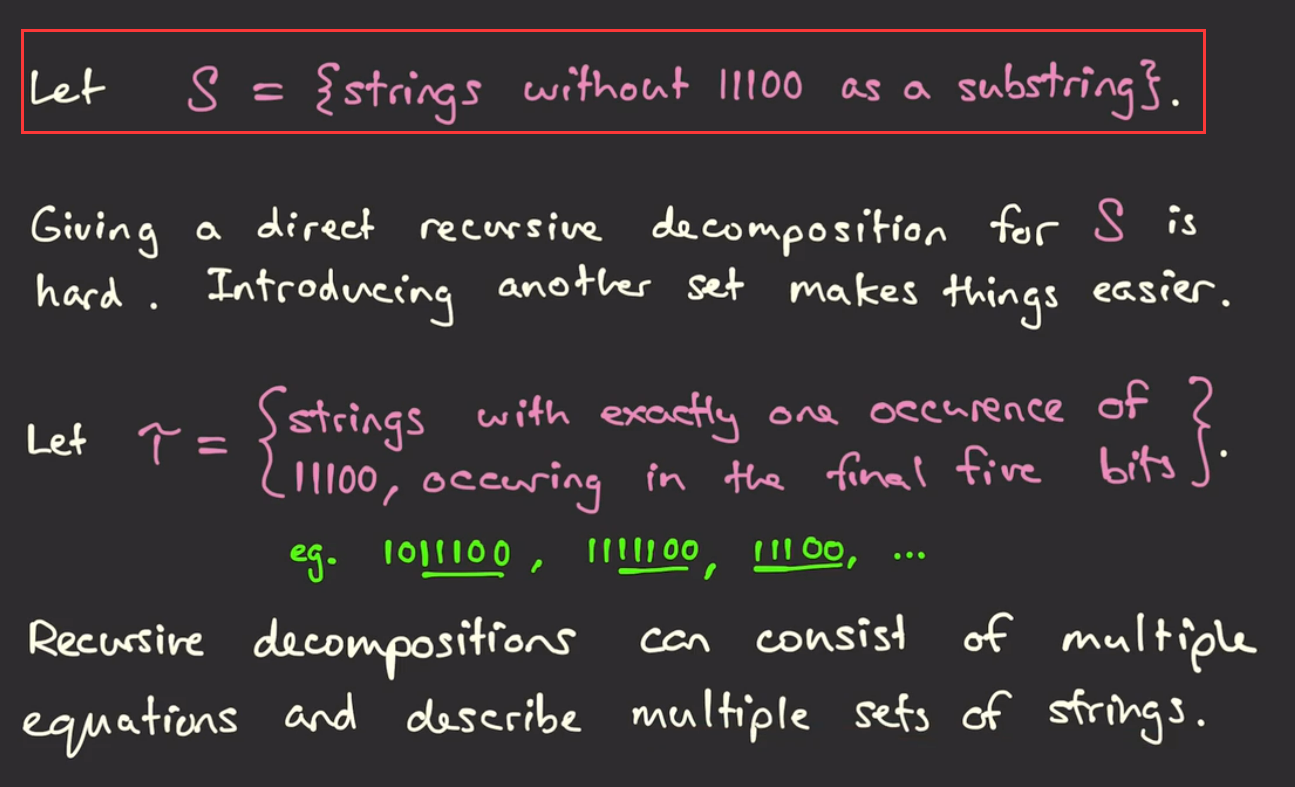 Let S = {strings without 11100 as a substring}.
Giving a direct recursive decomposition for S is
hard. Introducing another set makes things easier.
Let T = {strings with exactly one occurence of
11100, occuring in the final five bits}.
eg. 1011100, 1111100, 11100, ...
Recursive decompositions can consist of multiple
equations and describe multiple sets of strings.